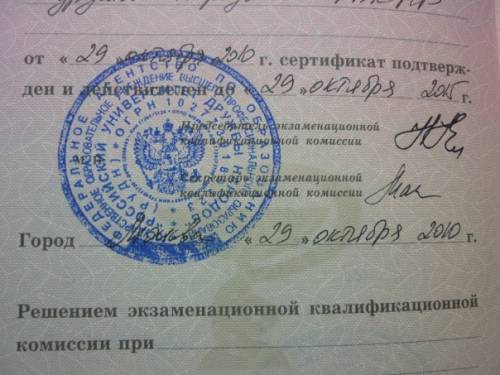 от « 29 » октября 2010 г. сертификат подтверж-
ден и действителен до « 29 » октября 2015 г.
Председатель экзаменационной
квалификационной комиссии
Секретарь экзаменационной
квалификационной комиссии
Город Москва « 29 » октября 2010 г.
Решением экзаменационной квалификационной
комиссии при
ФЕДЕРАЛЬНОЕ АГЕНТСТВО ПО ОБРАЗОВАНИЮ
ОБРАЗОВАТЕЛЬНОЕ УЧРЕЖДЕНИЕ ВЫСШЕГО ПРОФЕССИОНАЛЬНОГО
РОССИЙСКИЙ УНИВЕРСИТЕТ ДРУЖБЫ НАРОДОВ
ОГРН